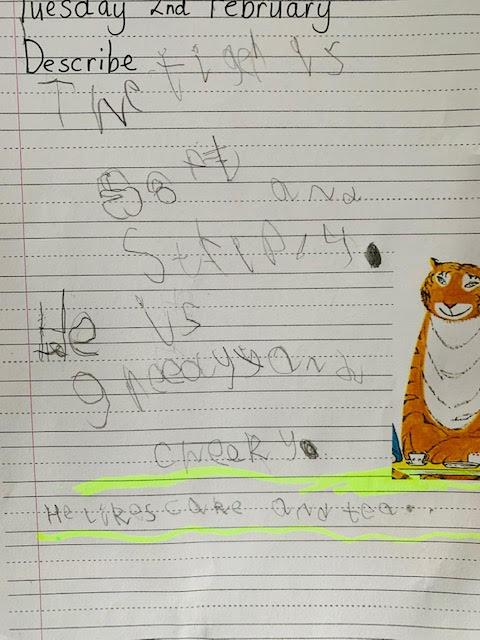 Tuesday 2nd February
Describe
The tiger is
soft and
Stripy.
He is
greedy and
cheeky.
He likes cake and tea.